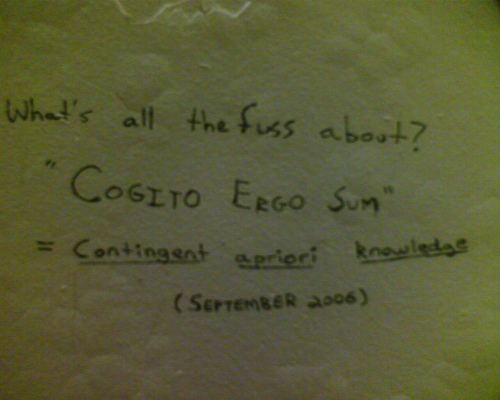 What's all the fuss about?
"COGITO ERGO SUM"
= Contingent apriori knowledge
(SEPTEMBER 2006)